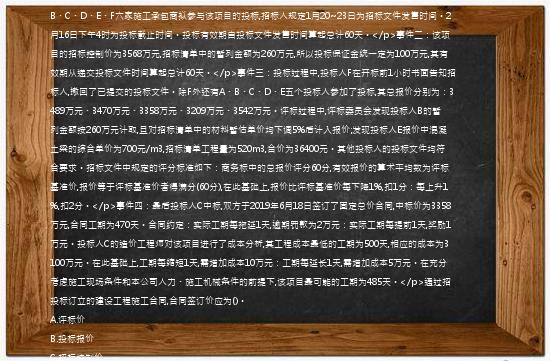 B、C、D、E、F六家施工承包商拟参与该项目的投标,招标人规定1月20~23日为招标文件发售时间。2
月16日下午4时为投标截止时间。投标有效期自投标文件发售时间算起总计60天。</p>事件二：该项
目的招标控制价为3568万元,招标清单中的暂列金额为260万元,所以投标保证金统一定为100万元,其有
效期从递交投标文件时间算起总计60天。</p>事件三：投标过程中,投标人F在开标前1小时书面告知招
标人,撤回了已提交的投标文件。除F外还有A、B、C、D、E五个投标人参加了投标,其总报价分别为：3
489万元、3470万元、3358万元、3209万元、3542万元。评标过程中,评标委员会发现投标人B的暂
列金额按260万元计取,且对招标清单中的材料暂估单价均下调5%后计入报价;发现投标人E报价中混凝
土梁的综合单价为700元/m3,招标清单工程量为520m3,合价为36400元。其他投标人的投标文件均符
合要求。招标文件中规定的评分标准如下：商务标中的总报价评分60分,有效报价的算术平均数为评标
基准价,报价等于评标基准价者得满分(60分),在此基础上,报价比评标基准价每下降1%,扣1分：每上升1
%,扣2分。</p>事件四：最后投标人C中标,双方于2019年6月18日签订了固定总价合同,中标价为3358
万元,合同工期为470天。合同约定：实际工期每拖延1天,逾期罚款为2万元：实际工期每提前1天,奖励1
万元。投标人C的造价工程师对该项目进行了成本分析,其工程成本最低的工期为500天,相应的成本为3
100万元。在此基础上,工期每缩短1天,需增加成本10万元：工期每延长1天,需增加成本5万元。在充分
考虑施工现场条件和本公司人力、施工机械条件的前提下,该项目最可能的工期为485天。</p>通过招
投标订立的建设工程施工合同,合同签订价应为()。
A.评标价
B.投标报价